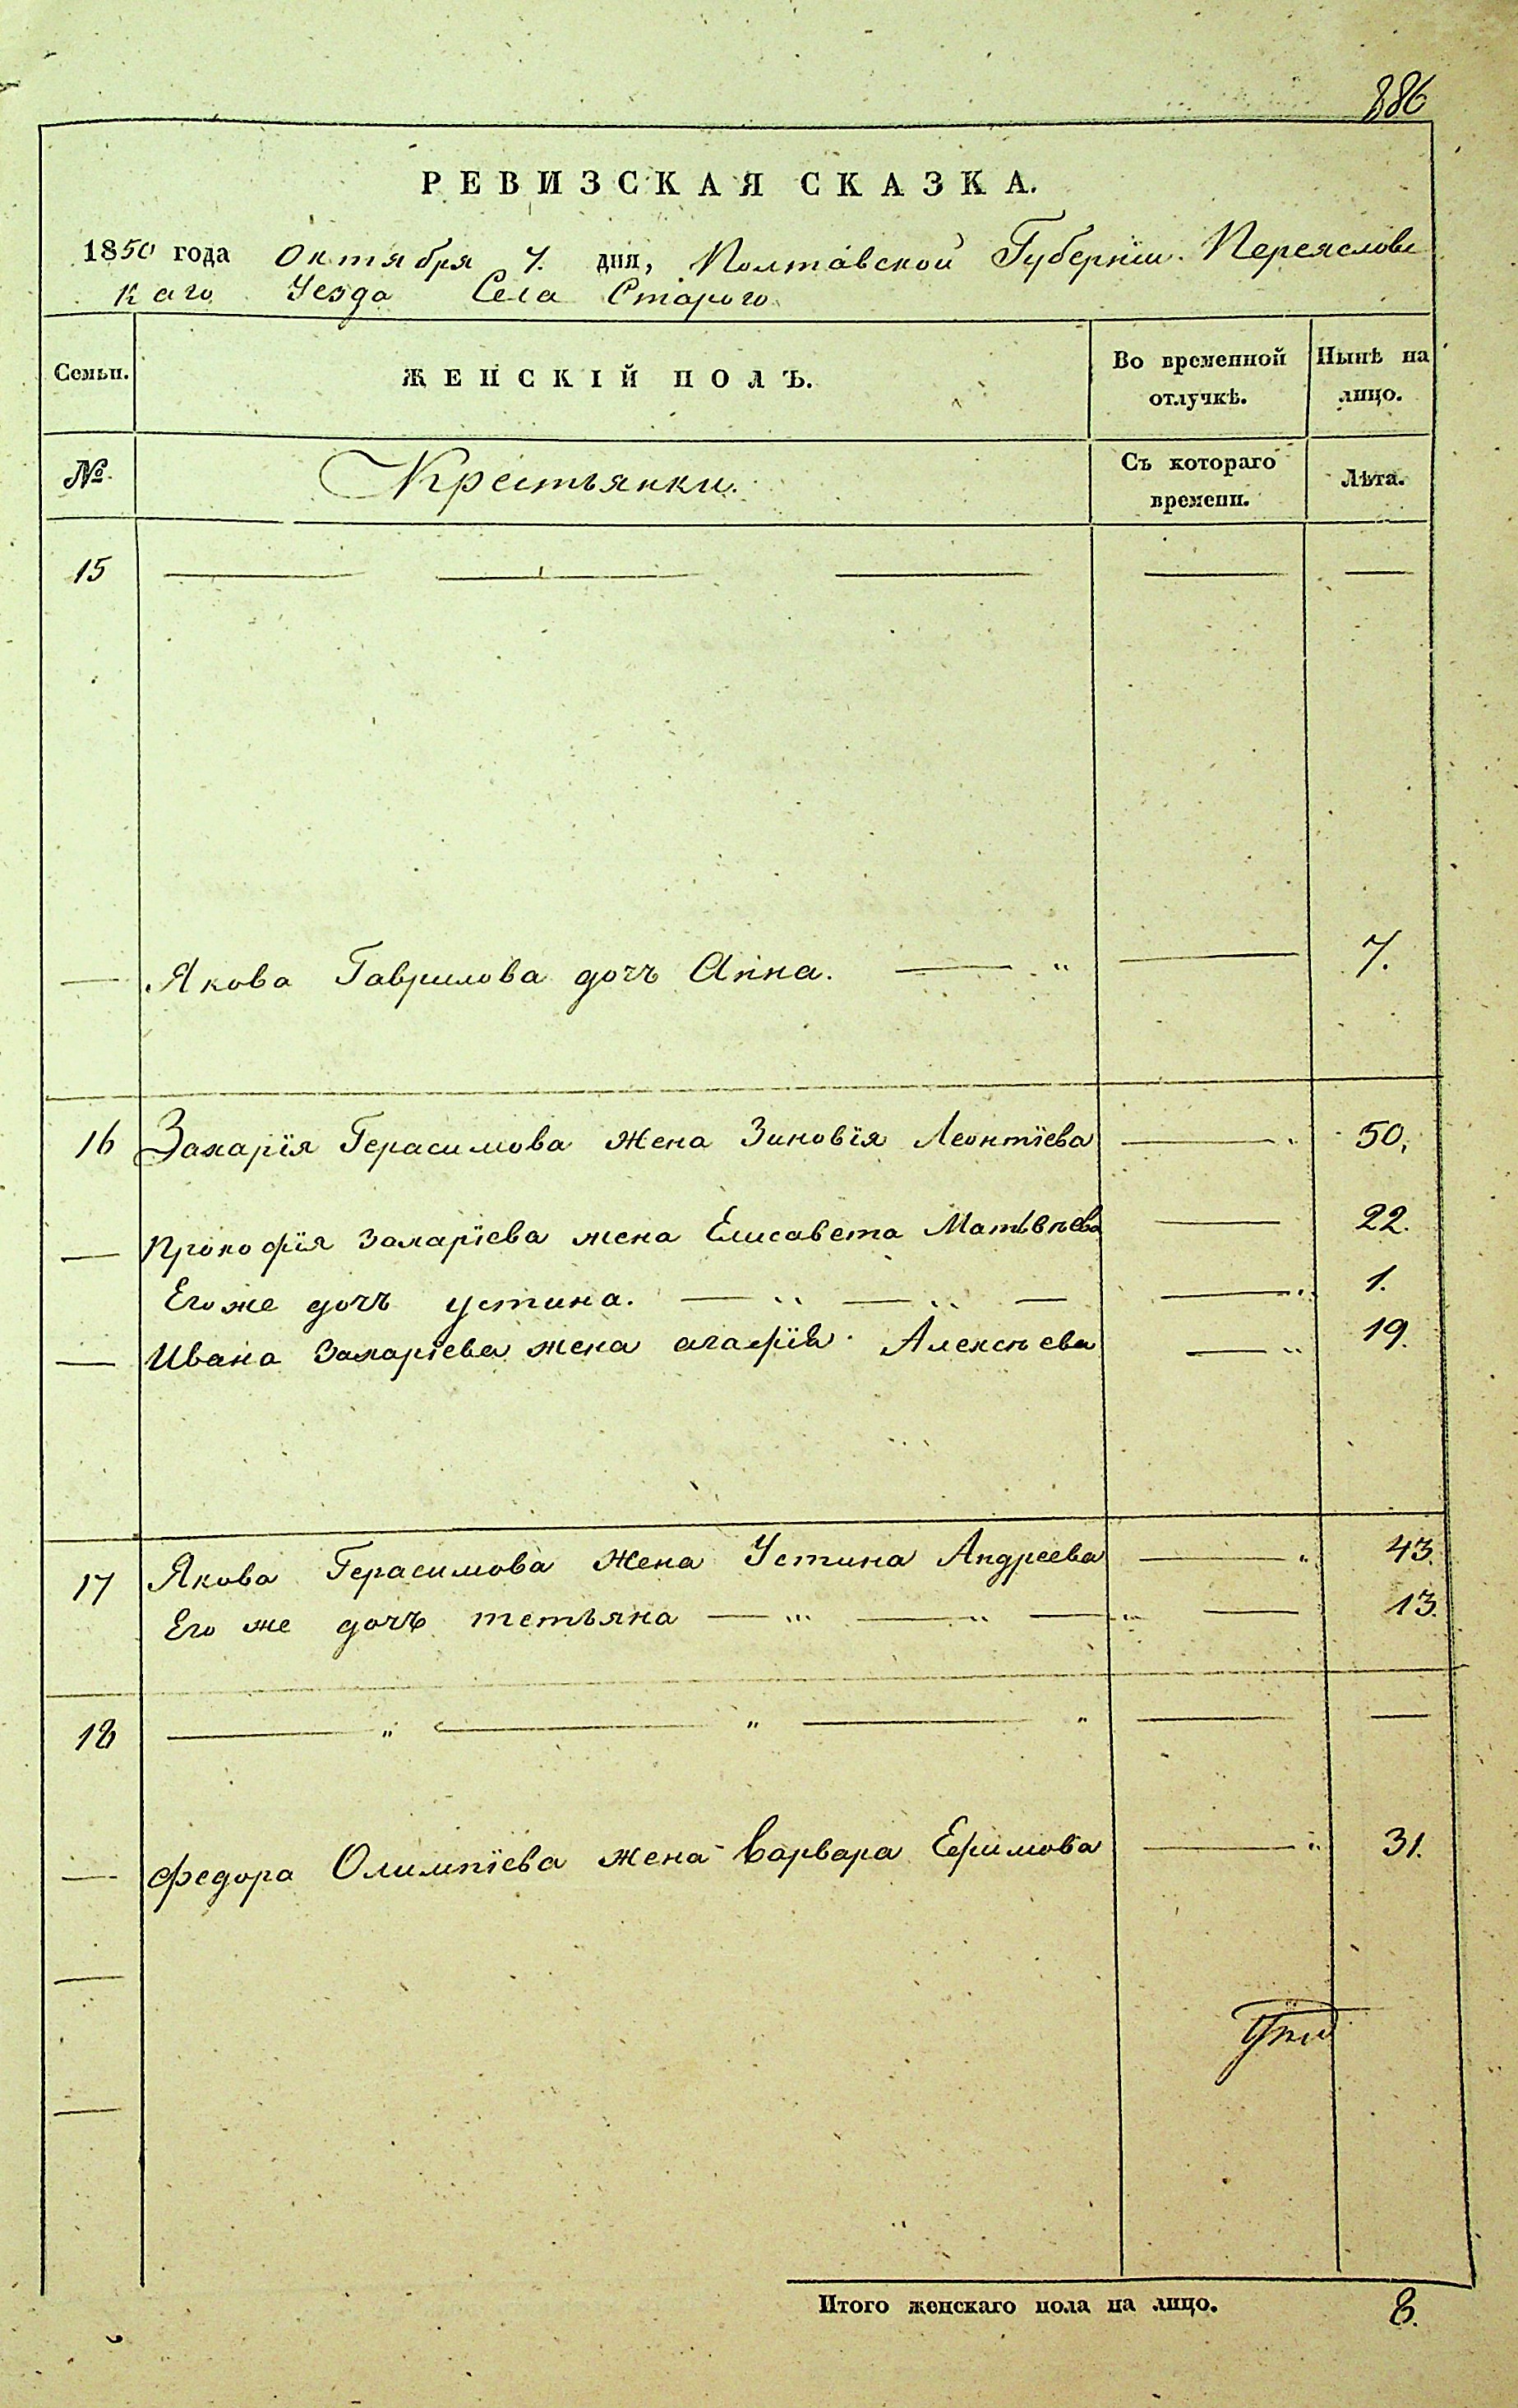 886
РЕВИЗСКАЯ СКАЗКА.
1850 года Октября 7. дня, Полтавской Губернїи Переяславс
каго Уезда Села Старого
Семьи. ЖЕНСКІЙ ПОЛЪ. Во временной отлучкѣ. Нынѣ на лицо.
№ Крестьянки. Съ котораго времени. Лѣта.
15
Якова Гаврилова дочь Анна. 7.
16 Захарїя Герасимова жена Зиновїя Леонтїева 50.
Прокофїя Захарїева жена Елисавета Матвѣева 22.
Его же дочь устина. 1.
Ивана Захарїева жена агафїя Алексѣева 19.
17 Якова Герасимова жена Устина Андреева 43.
Его же дочь тетьяна 13.
18
федора Олимпїева жена варвара Ефимова 31.
Итого женскаго пола на лицо. 8.